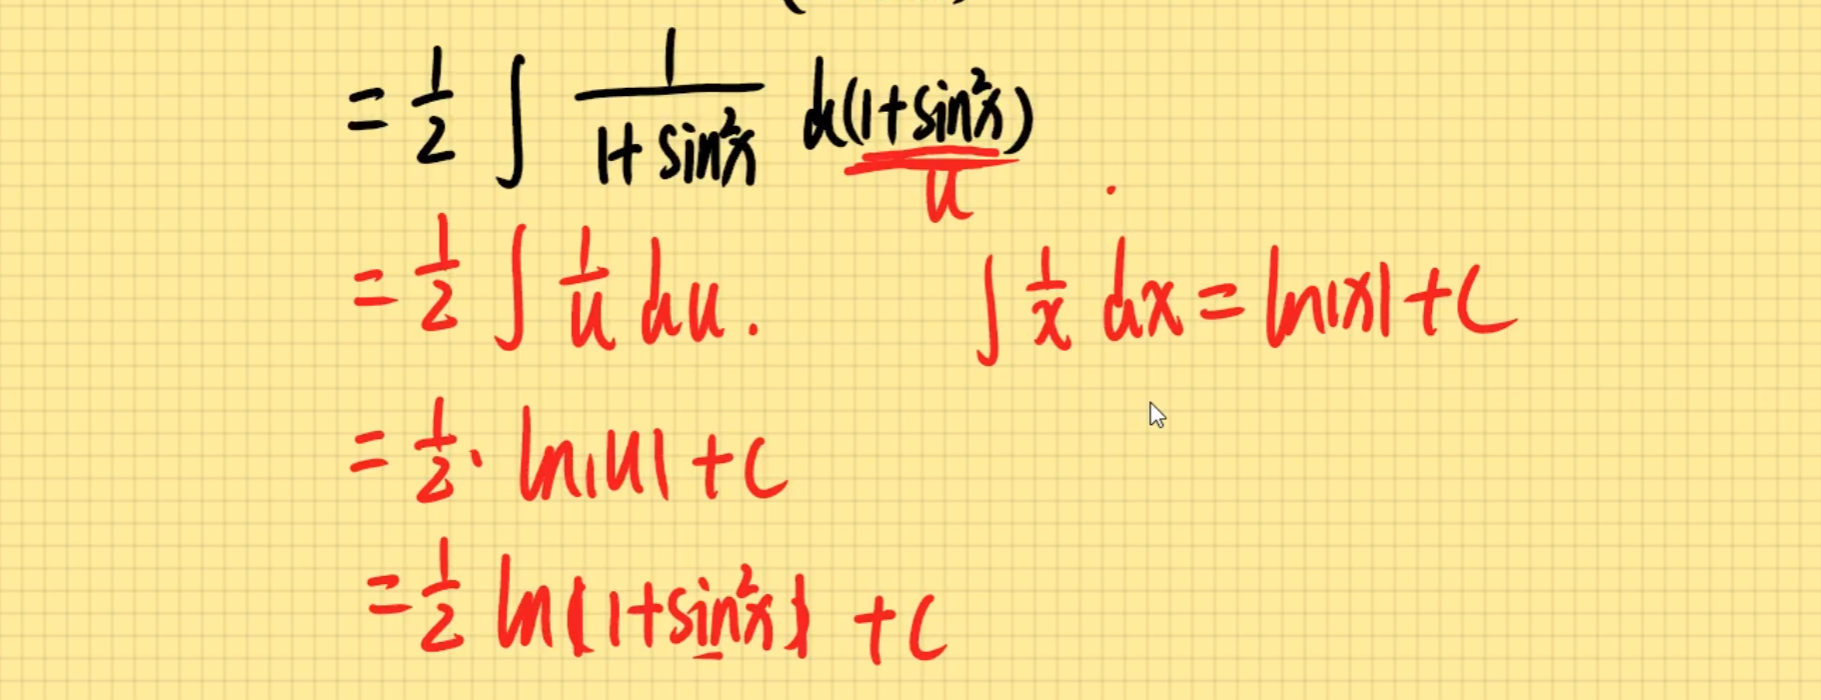 = 1/2 ∫ 1/(1+sin²x) d(1+sin²x)
u
= 1/2 ∫ 1/u du. ∫ 1/x dx = ln|x|+C
= 1/2 · ln|u|+C
= 1/2 ln(1+sin²x) +C